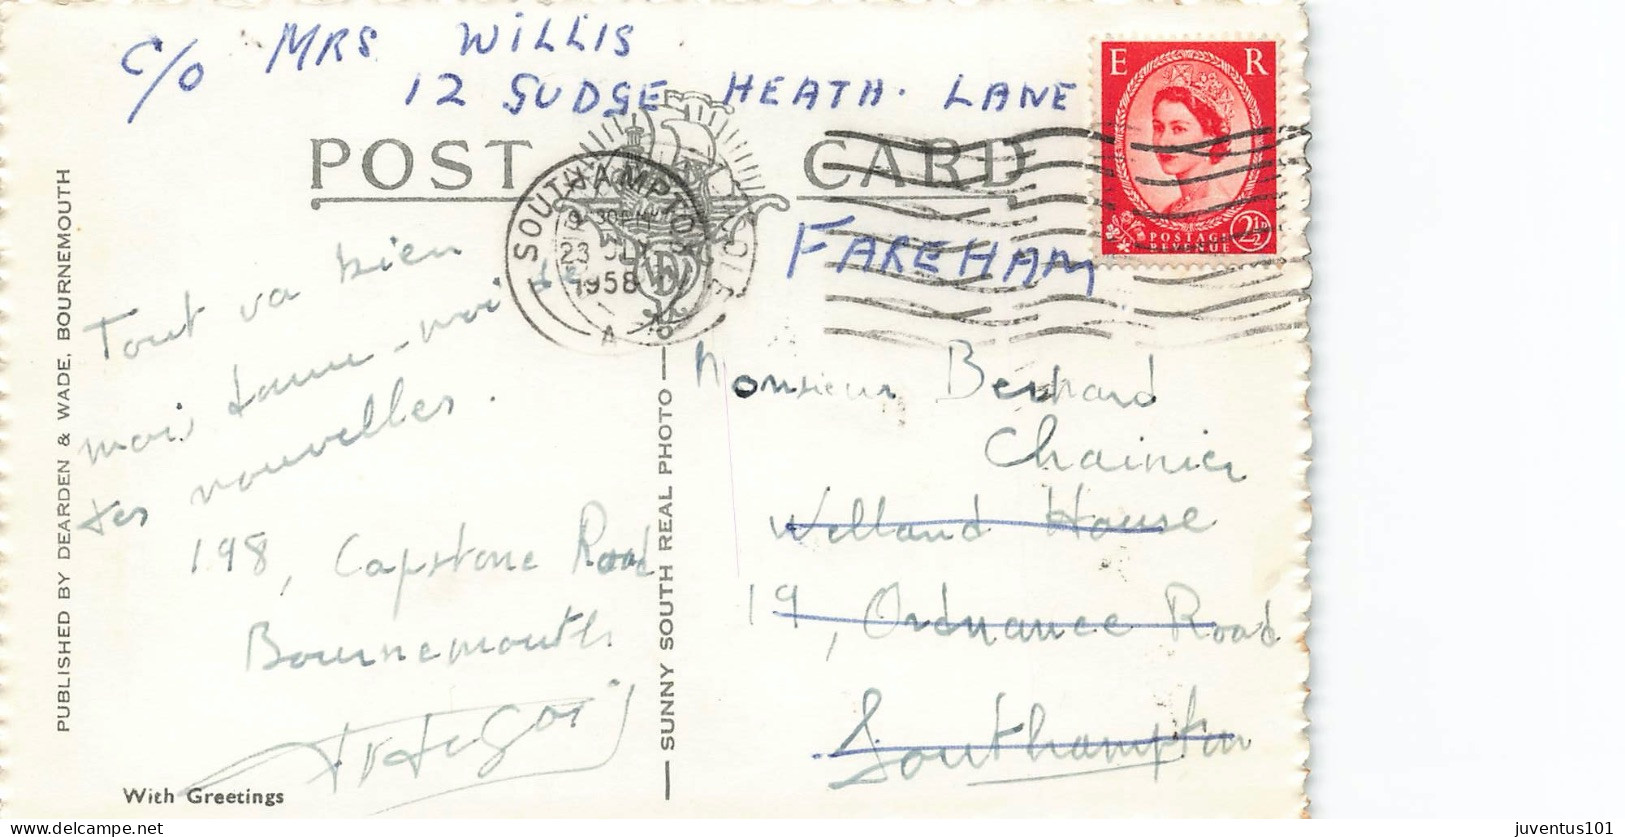 c/o MRS WILLIS
12 GUDGE HEATH. LANE
E R
POSTAGE
REVENUE
2½
POST CARD
SOUTHAMPTON
9 30
23 JLY
1958
A
FAREHAM
Tout va bien
moi de
mois
nouvelles.
198, Capstone Road
Bournemouth
Monsieur Bernard
Chainier
Welland House
19, Ordnance Road
Southampton
PUBLISHED BY DEARDEN & WADE, BOURNEMOUTH
SUNNY SOUTH REAL PHOTO
With Greetings
delcampe.net
juventus101